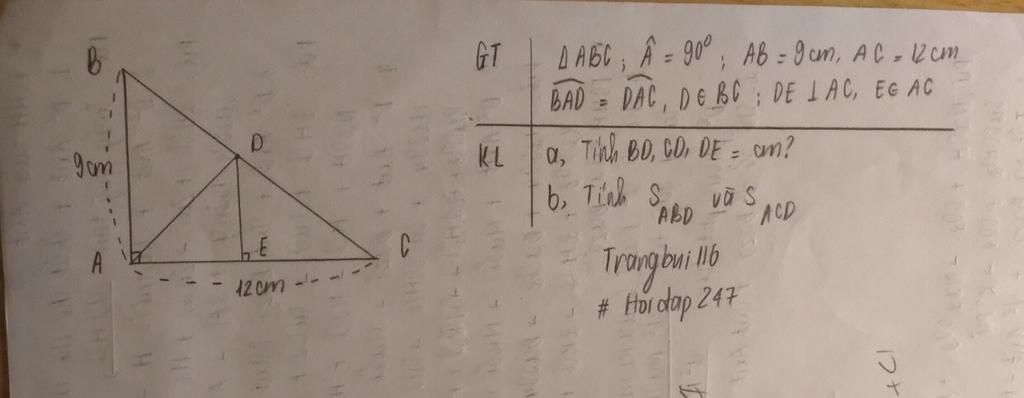 B
D
9cm
A
E
C
12cm
GT
ΔABC ; Â = 90° ; AB = 9cm, AC = 12cm
BAD = DAC, D ∈ BC ; DE ⊥ AC, E ∈ AC
KL
a, Tính BD, CD, DE = cm?
b, Tính S ABD và S ACD
Trangbui116
# Hoidap 247
+ Cl